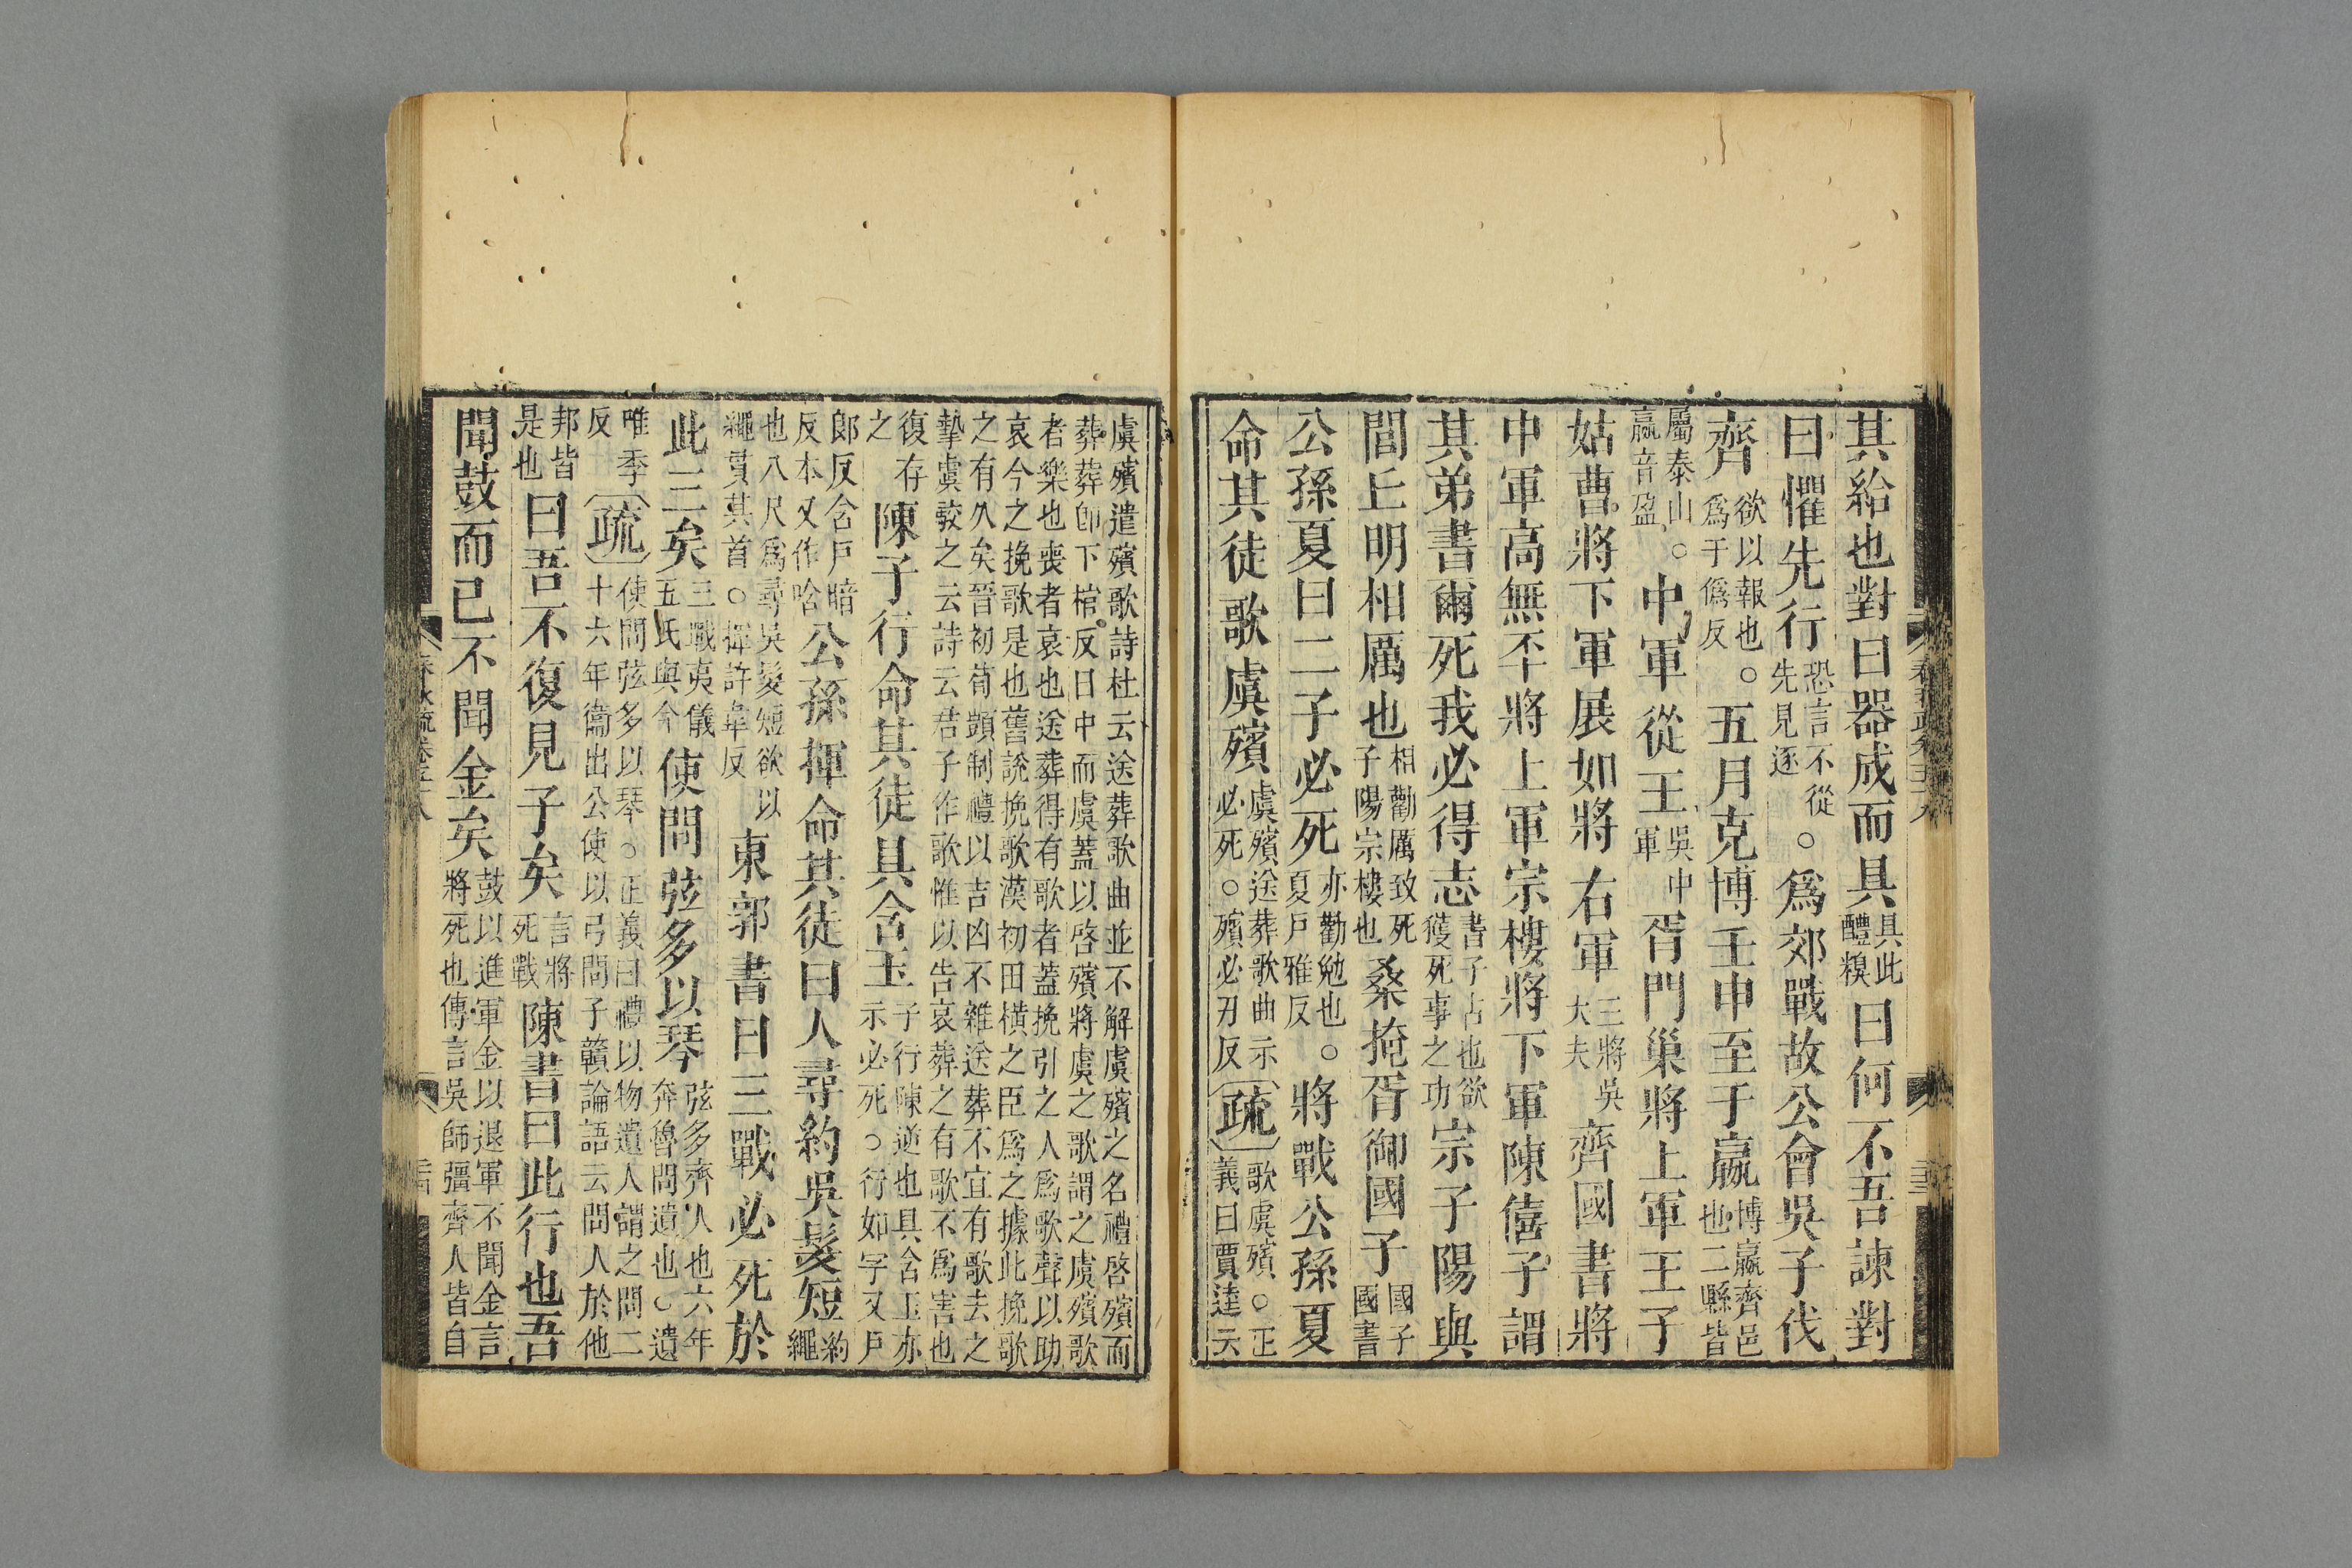 其給也對曰器成而具具此醴糗曰何不吾諫對
曰懼先行恐言不從先見逐○爲郊戰故公會吳子伐
齊欲以報也○爲于僞反五月克博壬申至于嬴博嬴齊邑也二縣皆
屬泰山○嬴音盈中軍從王吳中軍胥門巢將上軍王子
姑曹將下軍展如將右軍三將吳大夫齊國書將
中軍高無㔻將上軍宗樓將下軍陳僖子謂
其弟書爾死我必得志書子占也欲獲死事之功宗子陽與
閭丘明相厲也相勸厲致死子陽宗樓也桑掩胥御國子國子國書
公孫夏曰二子必死亦勸勉也○夏戶雅反將戰公孫夏
命其徒歌虞殯虞殯送葬歌曲示必死○殯必刃反疏歌虞殯○正義曰賈逵云
虞殯遣殯歌詩杜云送葬歌曲並不解虞殯之名禮啓殯而
葬葬卽下棺反日中而虞蓋以啓殯將虞之歌謂之虞殯歌
者樂也喪者哀也送葬得有歌者蓋挽引之人爲歌聲以助
哀今之挽歌是也舊說挽歌漢初田橫之臣爲之據此挽歌
之有久矣晉初荀顗制禮以吉凶不雜送葬不宜有歌去之
摯虞駮之云詩云君子作歌惟以告哀葬之有歌不爲害也
復存之陳子行命其徒具含玉子行陳逆也具含玉亦示必死○行如字又戶
郞反含戶暗反本又作唅公孫揮命其徒曰人尋約吳髮短約繩
也八尺爲尋吳髮短欲以繩貫其首○揮許韋反東郭書曰三戰必死於
此三矣三戰夷儀五氏與今使問弦多以琴弦多齊人也六年奔魯問遺也○遺
唯季反疏使問弦多以琴○正義曰禮以物遺人謂之問二十六年衞出公使以弓問子贛論語云問人於他
邦皆是也曰吾不復見子矣言將死戰陳書曰此行也吾
聞鼓而已不聞金矣鼓以進軍金以退軍不聞金言將死也傳言吳師彊齊人皆自